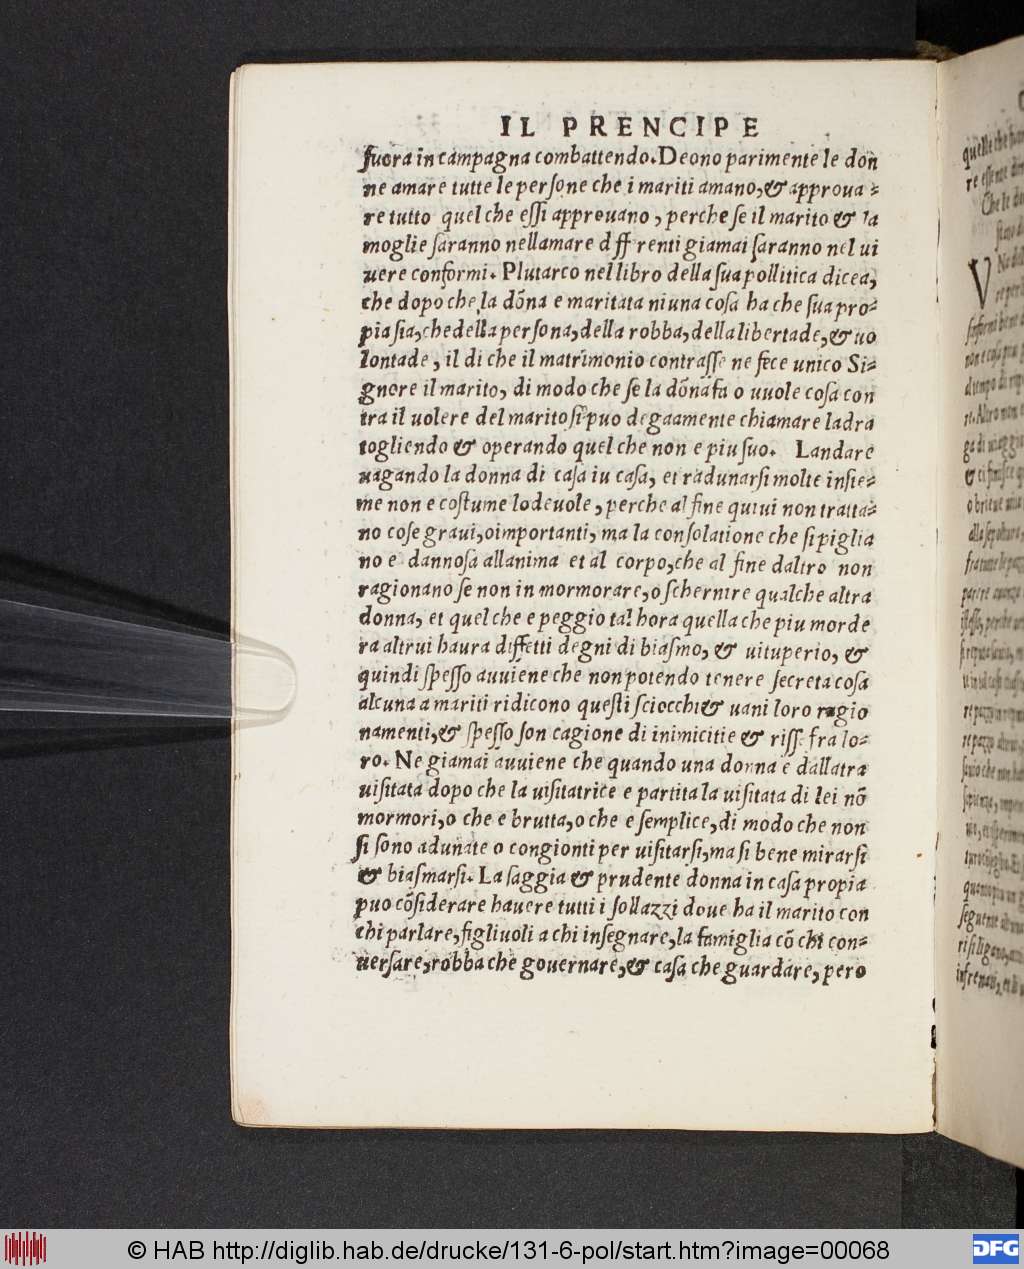 IL PRENCIPE
fuora in campagna combattendo. Deono parimente le don
ne amare tutte le persone che i mariti amano, & approua-
re tutto quel che essi approuano, perche se il marito & la
moglie saranno nellamare d ff renti giamai saranno nel ui
uere conformi. Plutarco nel libro della sua pollitica dicea,
che dopo che la dõna e maritata niuna cosa ha che sua pro-
pia sia, che della persona, della robba, della libertade, & uo
lontade, il di che il matrimonio contrasse ne fece unico Si-
gnore il marito, di modo che se la dõna fa o uuole cosa con
tra il uolere del marito si puo degaamente chiamare ladra
togliendo & operando quel che non e piu suo. Landare
uagando la donna di casa iu casa, et radunarsi molte insie-
me non e costume lodeuole, perche al fine quiui non tratta-
no cose graui, o importanti, ma la consolatione che si piglia
no e dannosa allanima et al corpo, che al fine daltro non
ragionano se non in mormorare, o schernire qualche altra
donna, et quel che e peggio tal hora quella che piu morde
ra altrui haura diffetti degni di biasmo, & uituperio, &
quindi spesso auuiene che non potendo tenere secreta cosa
alcuna a mariti ridicono questi sciocchi & uani loro ragio
namenti, & spesso son cagione di inimicitie & risse fra lo-
ro. Ne giamai auuiene che quando una donna e dallatra
uisitata dopo che la uisitatrice e partita la uisitata di lei nõ
mormori, o che e brutta, o che e semplice, di modo che non
si sono adunate o congionti per uisitarsi, ma si bene mirarsi
& biasmarsi. La saggia & prudente donna in casa propia
puo cõsiderare hauere tutti i sollazzi doue ha il marito con
chi parlare, figliuoli a chi insegnare, la famiglia cõ chi con-
uersare, robba che gouernare, & casa che guardare, pero
© HAB http://diglib.hab.de/drucke/131-6-pol/start.htm?image=00068
DFG